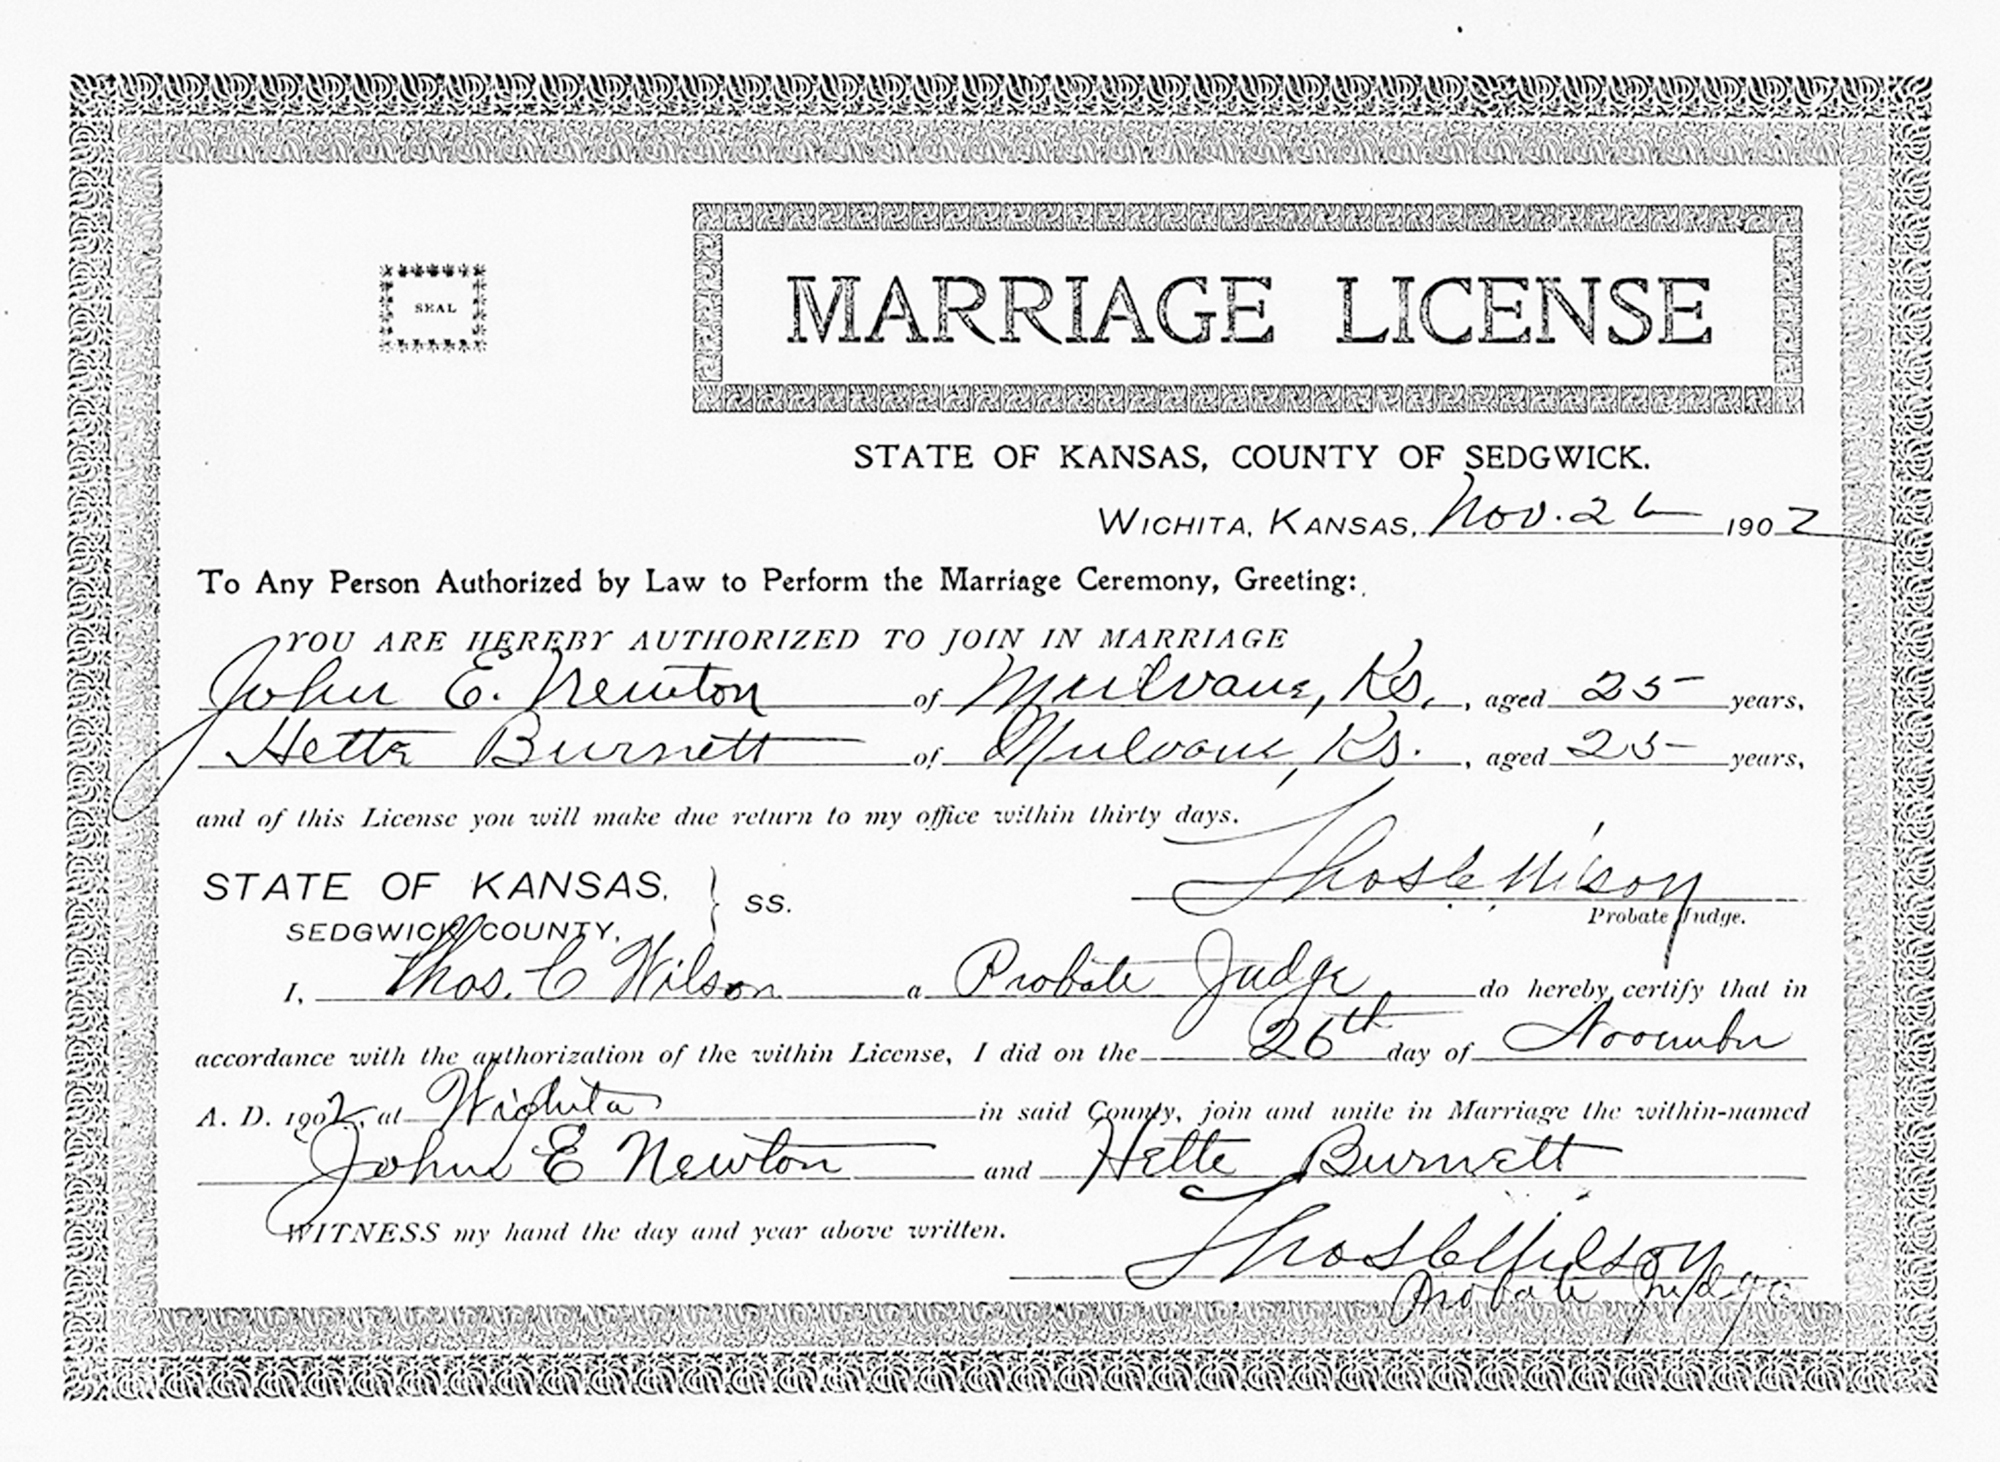 SEAL
MARRIAGE LICENSE
STATE OF KANSAS, COUNTY OF SEDGWICK.
WICHITA, KANSAS, Nov. 26 1902
To Any Person Authorized by Law to Perform the Marriage Ceremony, Greeting:
YOU ARE HEREBY AUTHORIZED TO JOIN IN MARRIAGE
John E. Newton of Mulvane, Ks., aged 25 years,
Hette Burnett of Mulvane, Ks., aged 25 years,
and of this License you will make due return to my office within thirty days.
Thos C Wilson
Probate Judge.
STATE OF KANSAS, } SS.
SEDGWICK COUNTY,
I, Thos. C Wilson a Probate Judge do hereby certify that in
accordance with the authorization of the within License, I did on the 26th day of November
A. D. 1902, at Wichita in said County, join and unite in Marriage the within-named
John E Newton and Hette Burnett
WITNESS my hand the day and year above written.
Thos C Wilson
Probate Judge